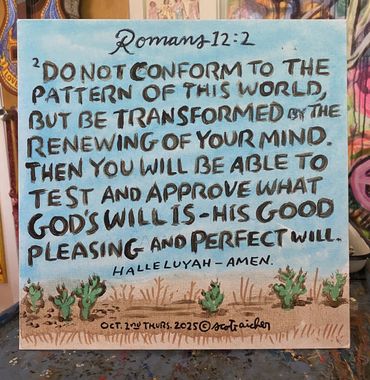 Romans 12:2
2 DO NOT CONFORM TO THE
PATTERN OF THIS WORLD,
BUT BE TRANSFORMED BY THE
RENEWING OF YOUR MIND.
THEN YOU WILL BE ABLE TO
TEST AND APPROVE WHAT
GOD'S WILL IS - HIS GOOD
PLEASING AND PERFECT WILL.
HALLELUYAH - AMEN.
OCT. 2ND THURS. 2025 ©